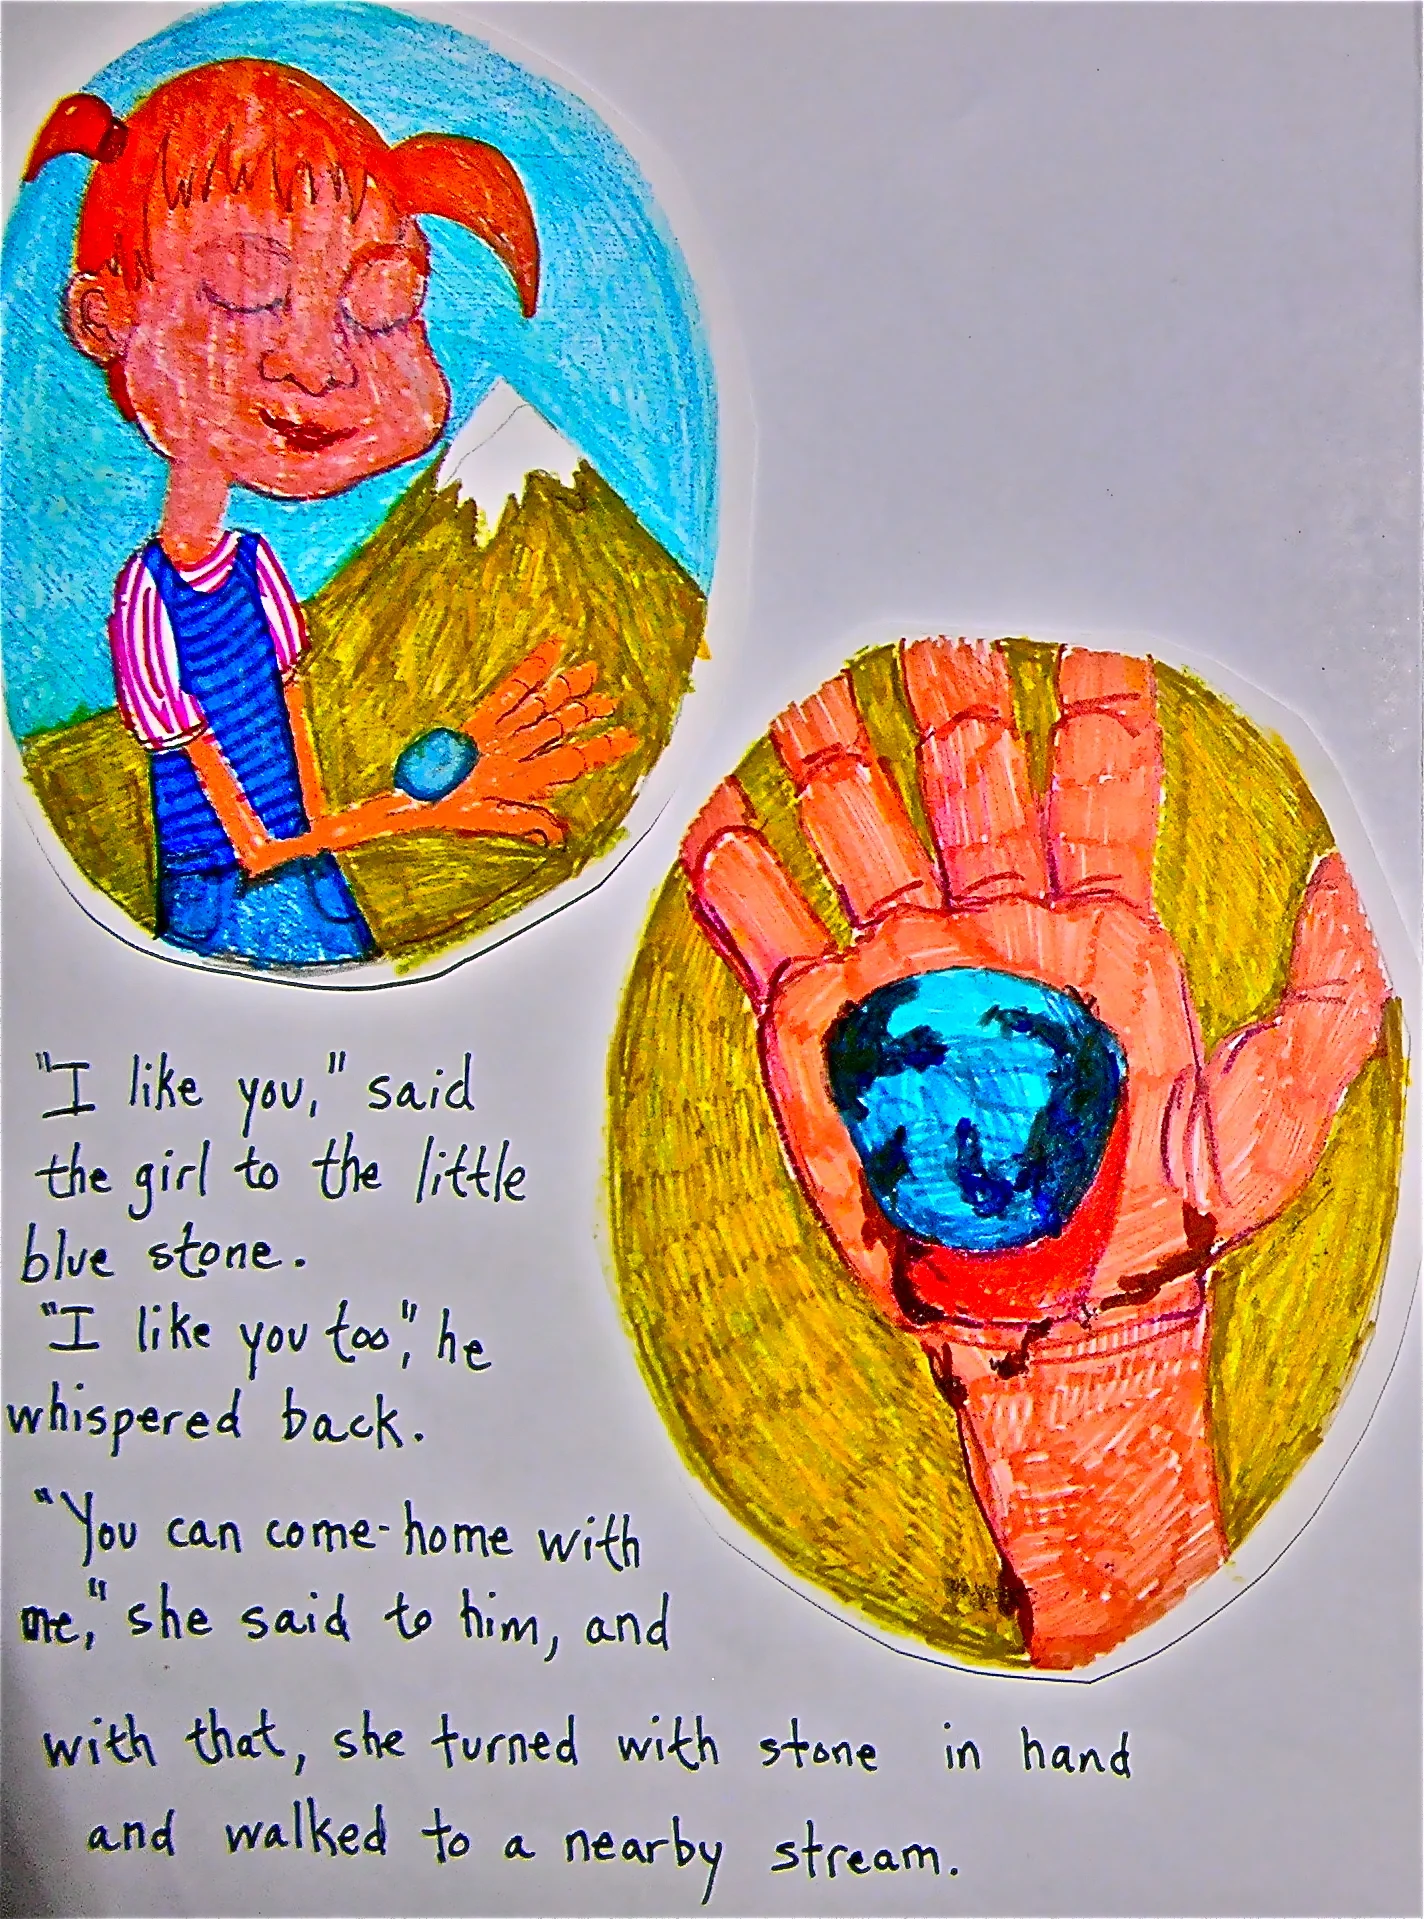 "I like you," said
the girl to the little
blue stone.
"I like you too," he
whispered back.
"You can come-home with
me," she said to him, and
with that, she turned with stone in hand
and walked to a nearby stream.